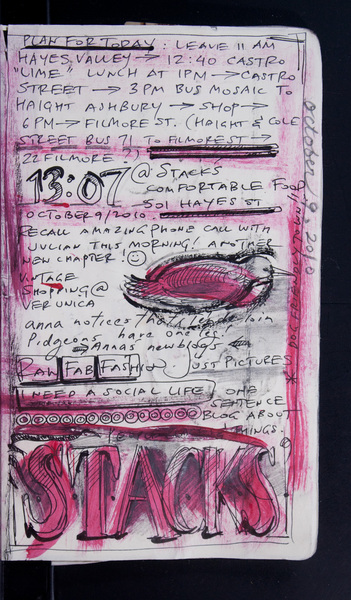 PLAN FOR TODAY : LEAVE 11 AM
HAYES VALLEY → 12:40 CASTRO
"LIME" LUNCH AT 1PM → CASTRO
STREET → 3PM BUS MOSAIC TO
HAIGHT ASHBURY → SHOP →
6PM → FILMORE ST. (HAIGHT & COLE
STREET BUS 71 TO FILMORE ST →
22 FILMORE ?)
13:07 @ STACKS
COMFORTABLE FOOD
501 HAYES ST
OCTOBER 9/2010
RECALL AMAZING PHONE CALL WITH
JULIAN THIS MORNING! ANOTHER
NEW CHAPTER!
VINTAGE
SHOPPING @
VER UNICA
anna notices that
Pidgeons have one leg!
Annas new blogs
RAW FAB FASHION JUST PICTURES
I NEED A SOCIAL LIFE, ONE
SENTENCE
BLOG ABOUT
THINGS.
STACKS
october / 9 2010